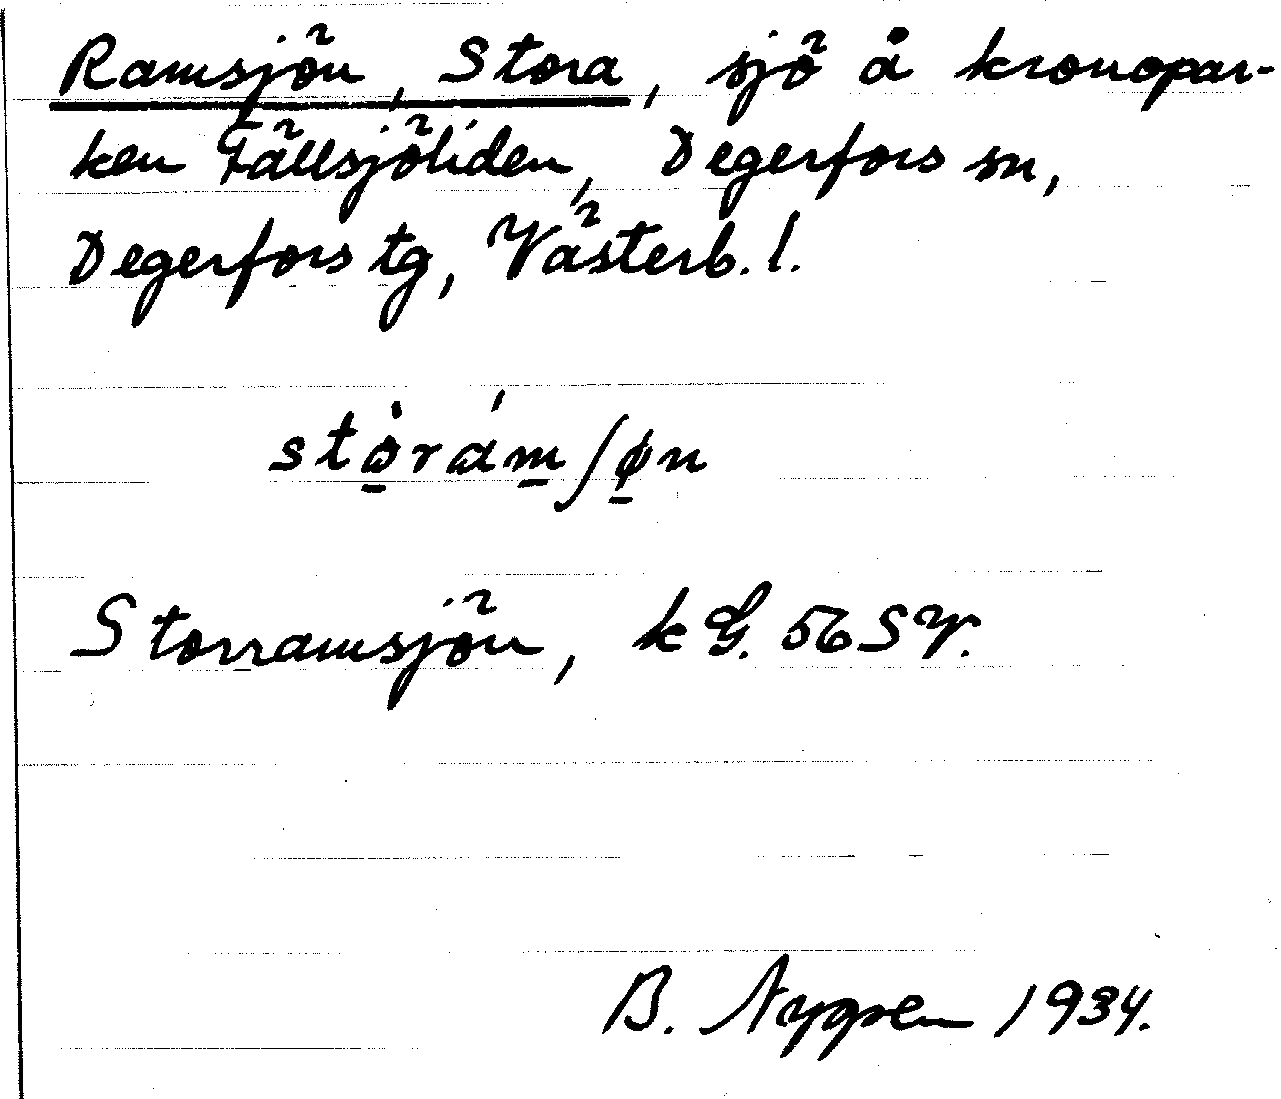 Ramsjön, Stora, sjö å kronopar-
ken Fällsjöliden, Degerfors sn,
Degerfors tg, Västerb. l.
Storramsjön, k G. 56 SV.
B. Nygren 1934.